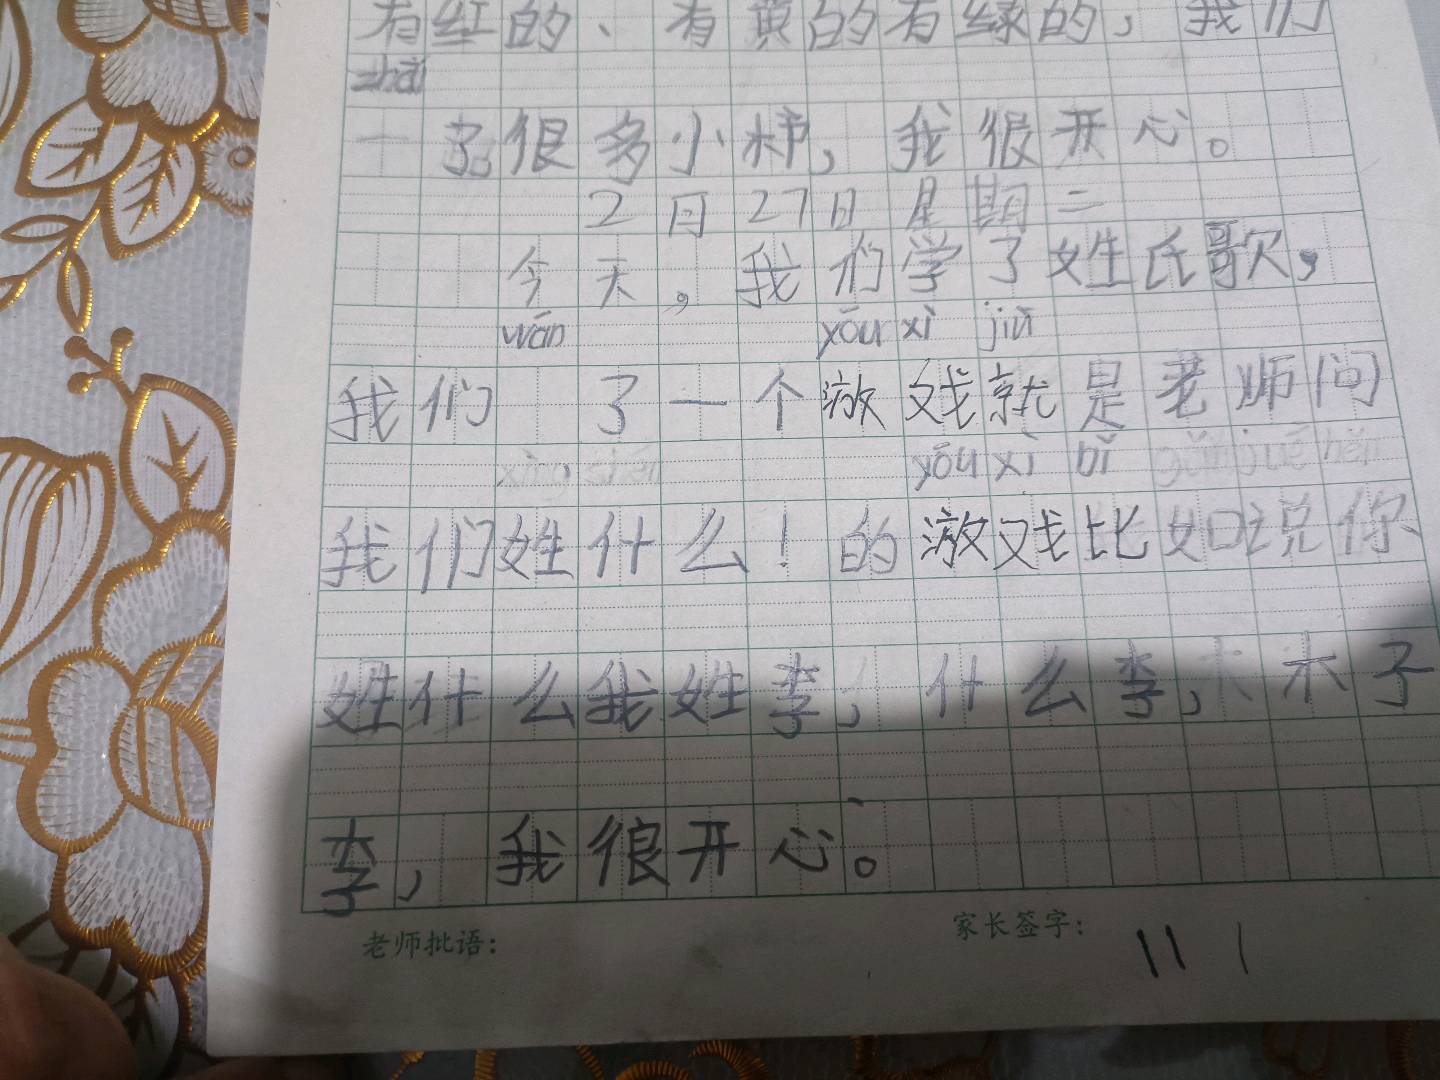 有红的、有黄的有绿的，我们
zhāi
一了很多小棒，我很开心。
2月27日星期二
今天，我们学了姓氏歌，
wán yóu xì jiù
我们 了一个游戏就是老师问
yóu xì bǐ
我们姓什么！的游戏比如说你
姓什么我姓李，什么李，木子
李，我很开心。
老师批语： 家长签字：